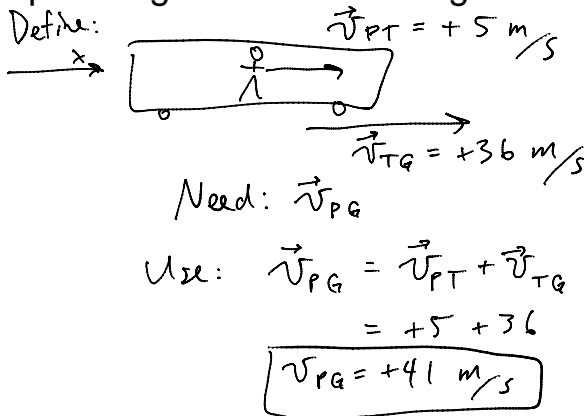 Define:
x
v⃗PT = + 5 m/s
v⃗TG = +36 m/s
Need: v⃗PG
Use: v⃗PG = v⃗PT + v⃗TG
= +5 +36
vPG = +41 m/s